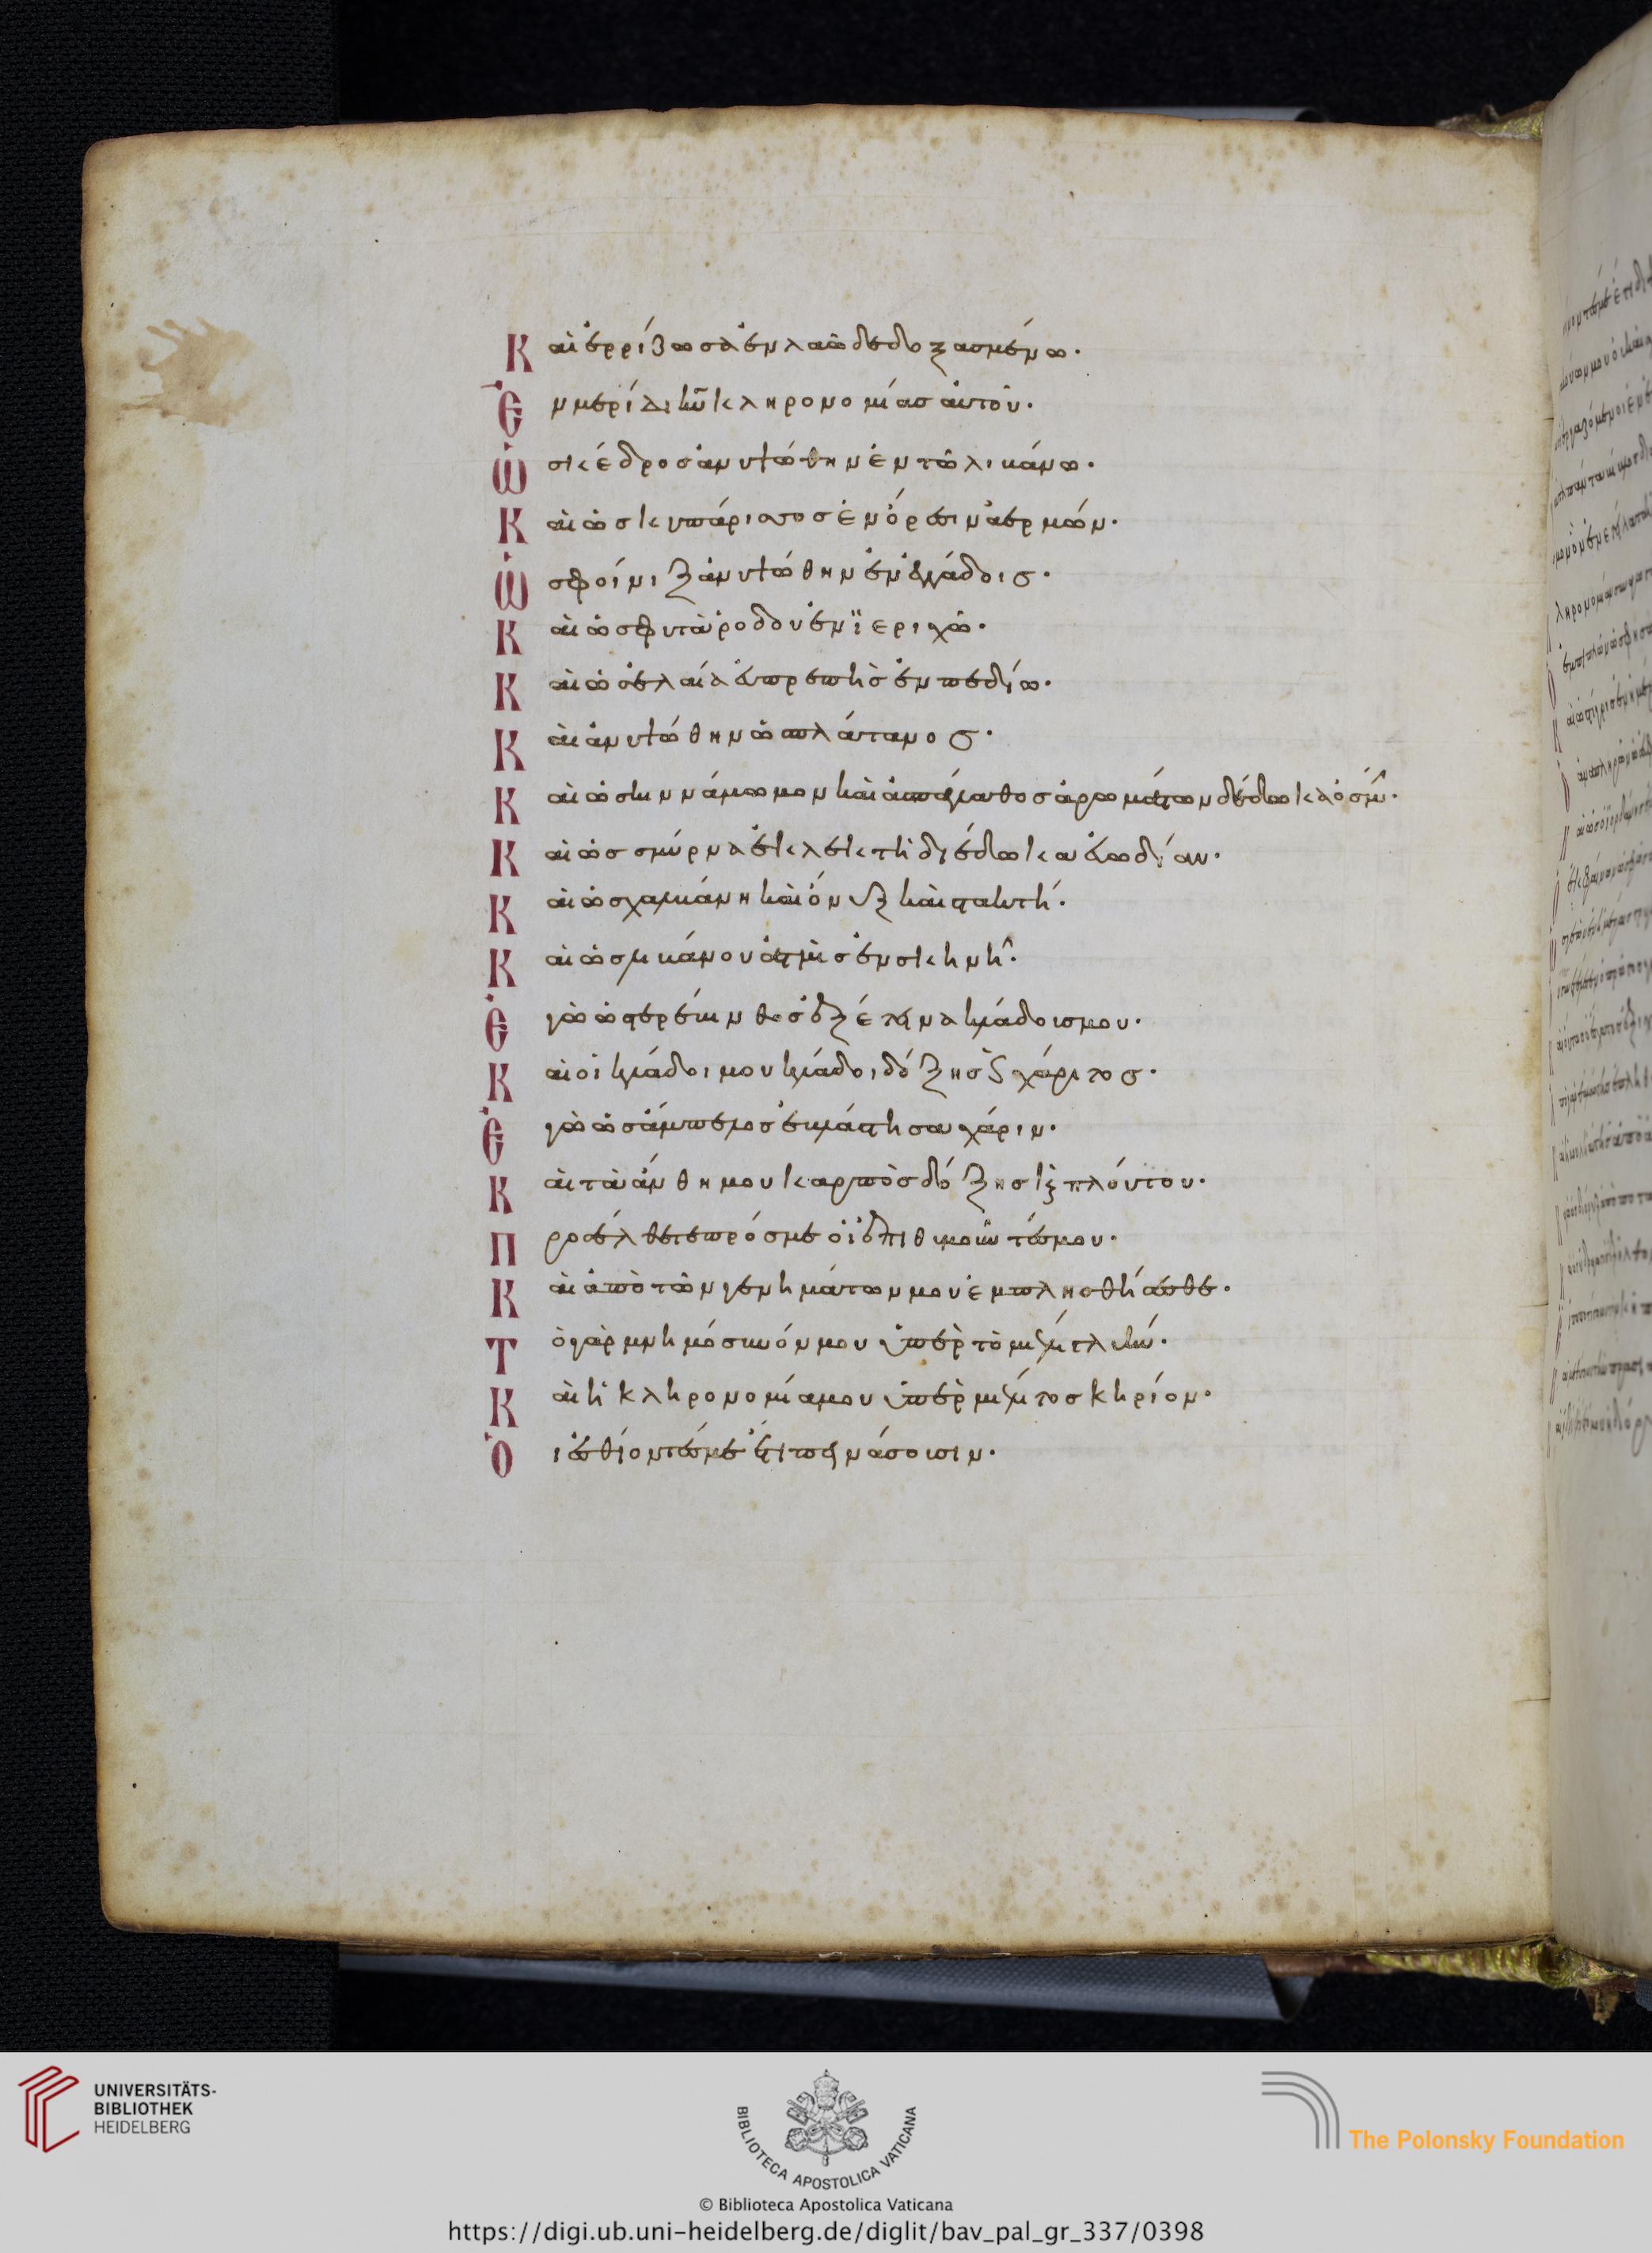 Και ἐρρίζωσα ἐν λαῶ δεδοξασμένω·
Ἐν μερίδι κ̅υ̅ κληρονομίας αὐτοῦ·
Ὡς κέδρος ἀνυψώθην ἐν τῶ λιβάνω·
Καὶ ὡς κυπάρισσος ἐν ὄρεσιν ἀερμών·
Ὡς φοίνιξ ἀνυψώθην ἐν ἐγγάδοις·
Καὶ ὡς φυτὰ ῥόδου ἐν ϊεριχῶ·
Καὶ ὡς ἐλαία εὐπρεπὴς ἐν πεδίω·
Καὶ ἀνυψώθην ὡς πλάτανος·
Καὶ ὡς κιννάμωμον καὶ ἀσπάλαθος ἀρωμάτων δέδωκα ὀσμήν·
Καὶ ὡς σμύρνα ἐκλεκτὴ διέδωκα εὐωδίαν·
Καὶ ὡς χαλβάνη καὶ ὄνυξ καὶ στακτή·
Καὶ ὡς λιβάνου ἀτμὶς ἐν σκηνῆ·
Ἐγὼ ὡς τερέβινθος ἐξέτεινα κλάδους μου·
Καὶ οἱ κλάδοι μου κλάδοι δόξης ϗ χάριτος·
Ἐγὼ ὡς ἄμπελος ἐβλάστησα χάριν·
Καὶ τὰ ἄνθη μου καρπὸς δόξης ϗ πλούτου·
Προσέλθετε πρός με οἱ ἐπιθυμοῦντές μου·
Καὶ ἀπὸ τῶν γενημάτων μου ἐμπλήσθητε·
Τὸ γὰρ μνημόσυνόν μου ὑπὲρ τὸ μέλι γλυκύ·
Καὶ ἡ κληρονομία μου ὑπὲρ μέλιτος κηρίον·
Ὁι ἐσθίοντές με ἔτι πεινάσουσιν·
UNIVERSITÄTS-
BIBLIOTHEK
HEIDELBERG
BIBLIOTECA APOSTOLICA VATICANA
The Polonsky Foundation
© Biblioteca Apostolica Vaticana
https://digi.ub.uni-heidelberg.de/diglit/bav_pal_gr_337/0398